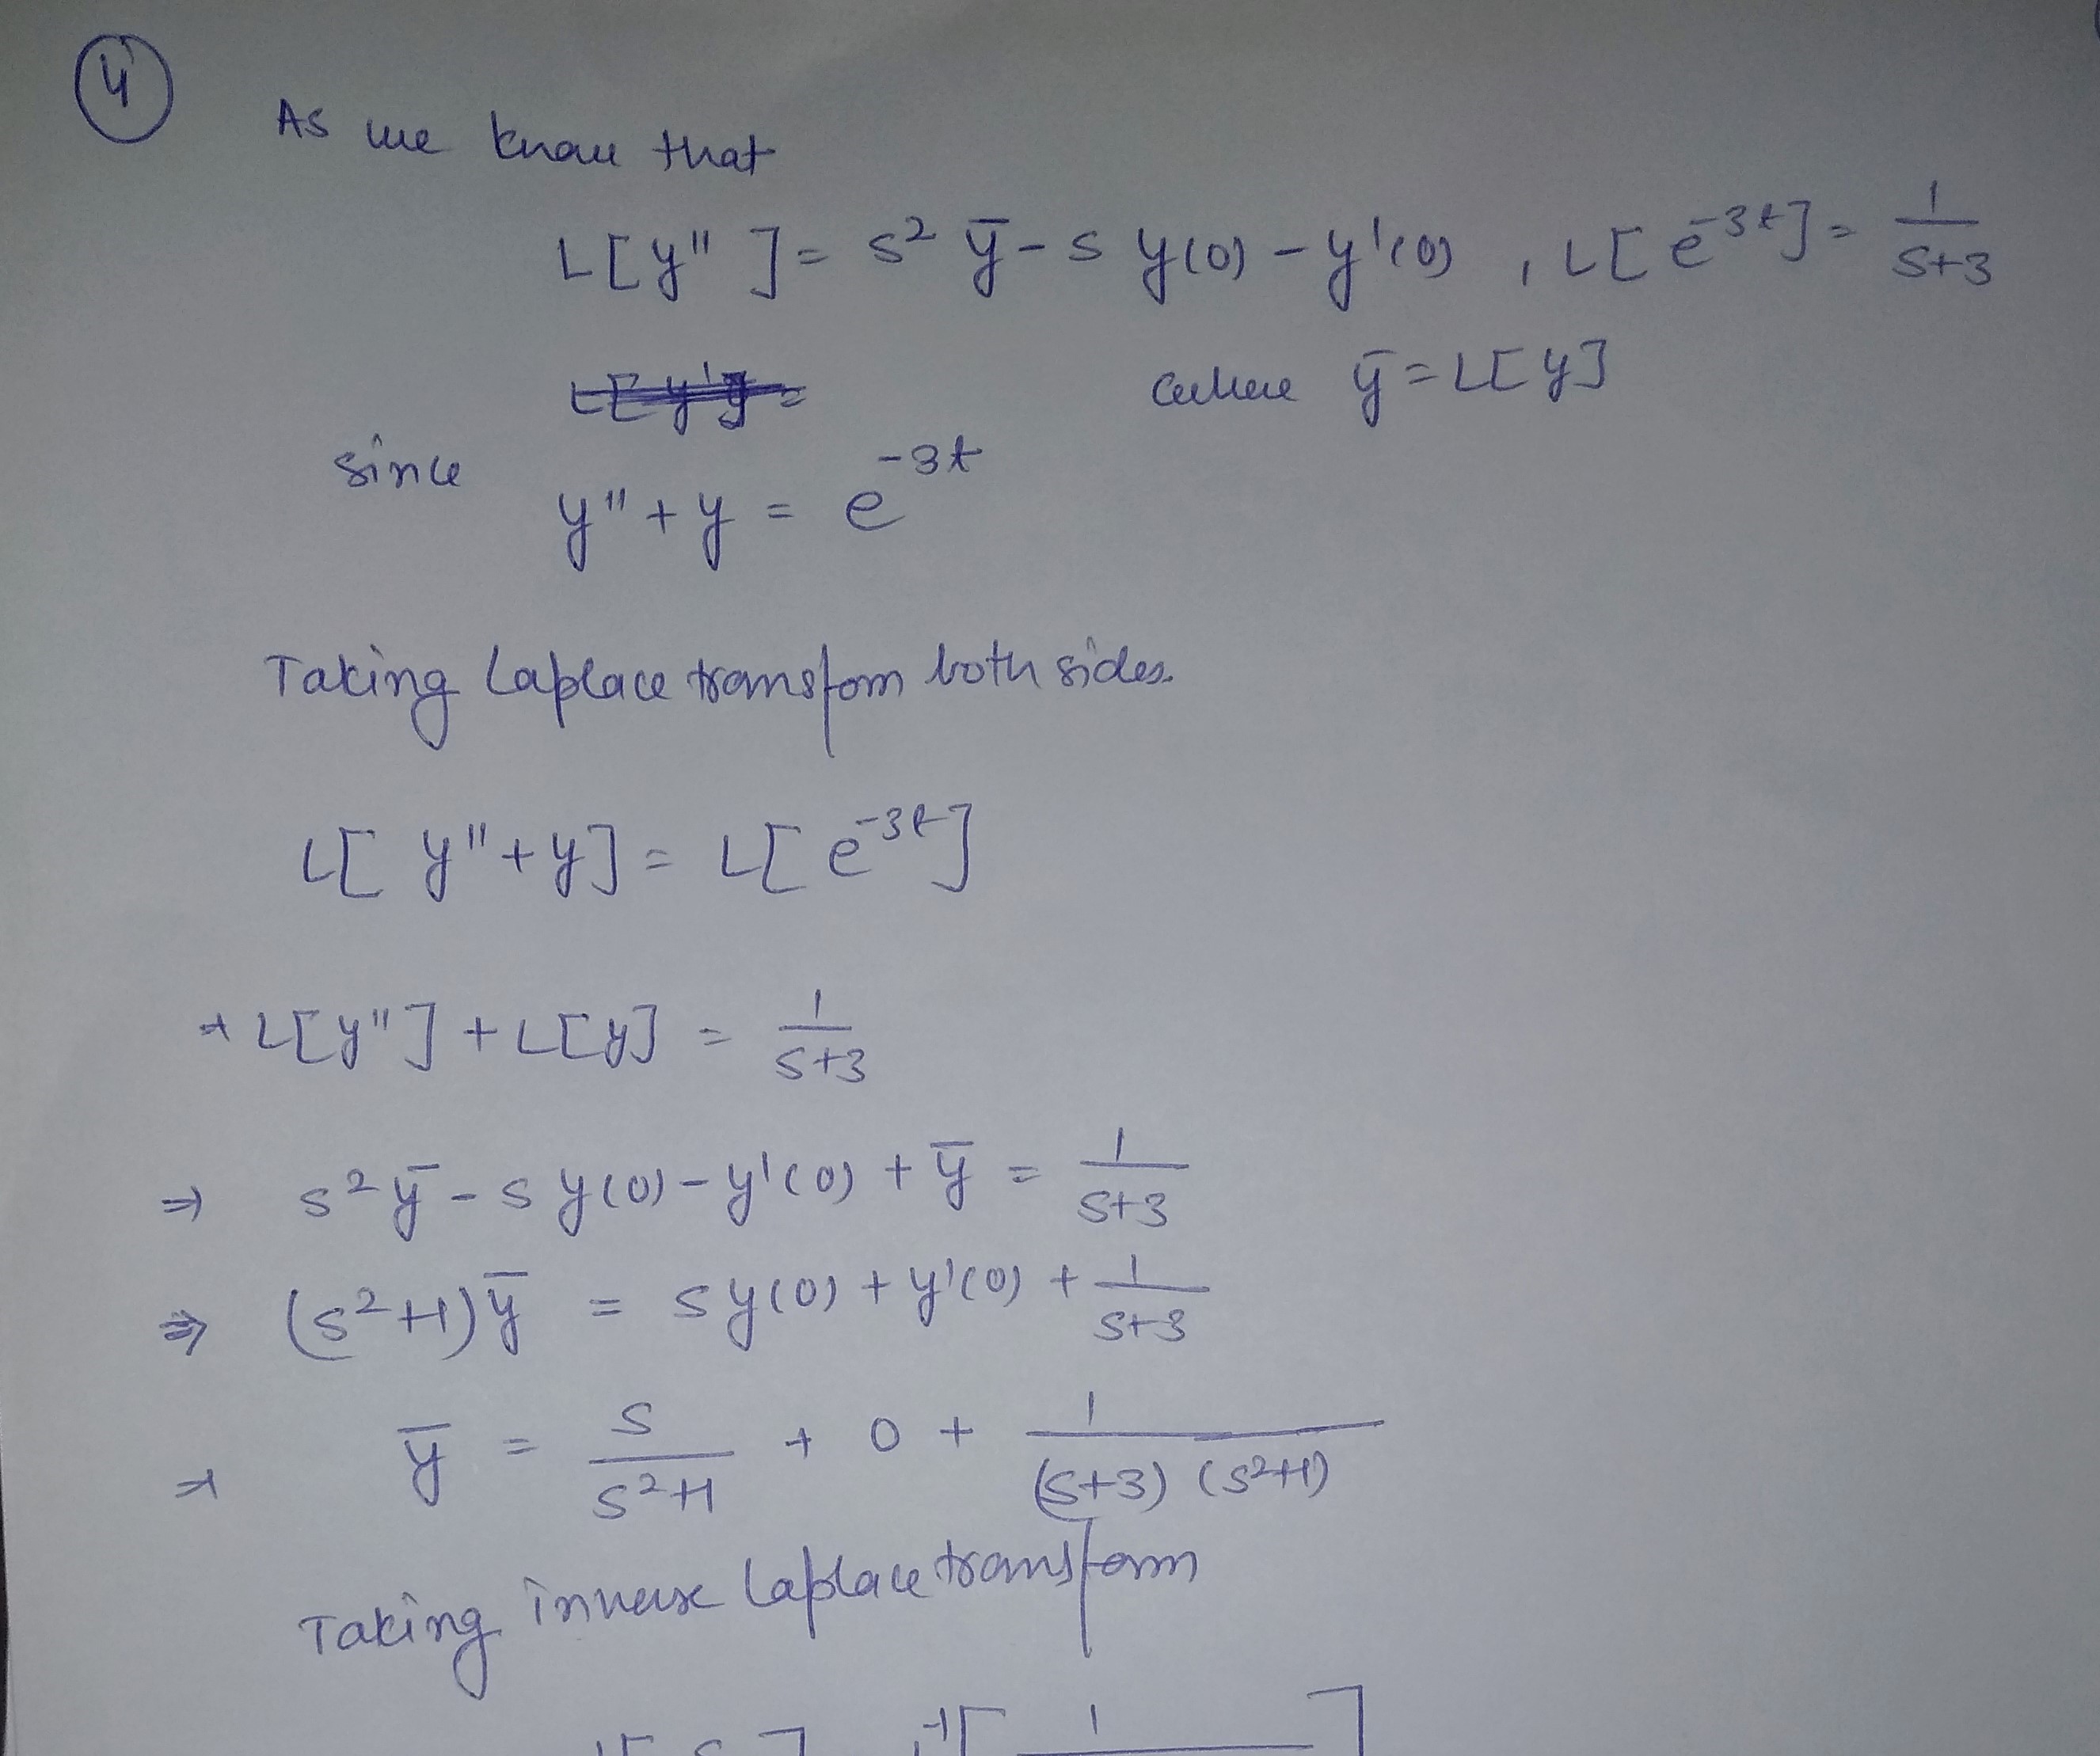 4
As we know that
L[y"] = s² ȳ - s y(0) - y'(0) , L[e^-3t] = 1/(s+3)
where ȳ = L[y]
since
y" + y = e^-3t
Taking Laplace transfom both sides.
L[y" + y] = L[e^-3t]
L[y"] + L[y] = 1/(s+3)
⇒ s² ȳ - s y(0) - y'(0) + ȳ = 1/(s+3)
⇒ (s²+1) ȳ = s y(0) + y'(0) + 1/(s+3)
ȳ = s/(s²+1) + 0 + 1/((s+3) (s²+1))
Taking inverse Laplace transform